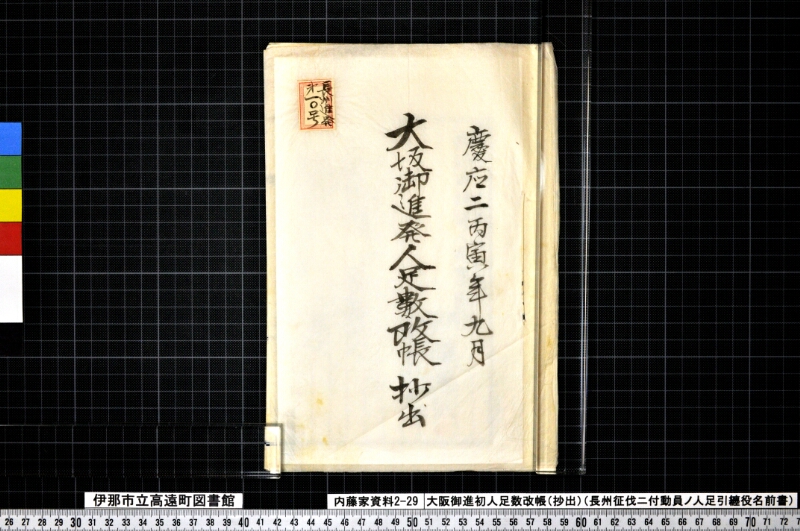 慶応二丙寅年九月
大坂御進発人足数改帳 抄出
長州進発
第一〇号
伊那市立高遠町図書館
内藤家資料2-29
大阪御進初人足数改帳(抄出)(長州征伐ニ付動員ノ人足引纏役名前書)
26 27 28 29 30 31 32 33 34 35 36 37 38 39 40 41 42 43 44 45 46 47 48 49 50 51 52 53 54 55 56 57 58 59 60 61 62 63 64 65 66 67 68 69 70 71 72